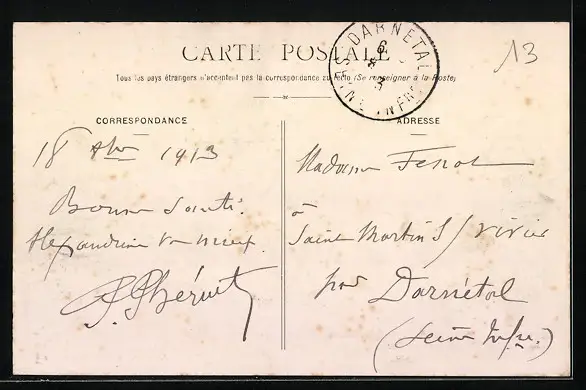 CARTE POSTALE
Tous les pays étrangers n'acceptent pas la correspondance au recto (Se renseigner à la Poste)
DARNETAL
SEINE INFRE
13
CORRESPONDANCE
18 1913
Bonne Santé
Alexandrine va mieux
ADRESSE
Madame
à
Saint Martin S/ vivier
par Darnétal
(Seine Infre.)